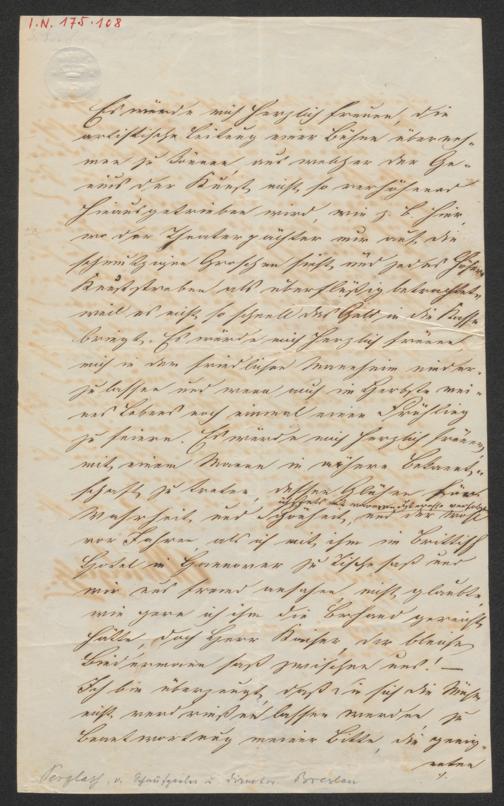 I.N. 175.108
Es würde mich herzlich freuen, die
artistische Leitung einer Bühne überneh-
men zu können aus welcher der Ge-
nius der Kunst nicht so verhöhnend
hinausgetrieben wird, wie z. b. hier,
wo der Theaterpächter nur auf die
schmutzigen Groschen sieht und jedes höhere
Kunststreben als überflüßig betrachtet,
weil es nicht so schnell das Geld in die Kasse
bringt. Es würde mich herzlich freuen
mich in dem friedlichen Mannheim nieder-
zulassen und wenn auch im Herbste mei-
nes Lebens noch einmal einen Frühling
zu feiern. Es würde mich herzlich freuen,
mit einem Manne in nähere Bekannt-
schaft zu treten, dessen Glühen für
Wahrheit und Schönheit, und der wohl
vor Jahren als ich mit ihm im brittisch
Hotel in Hannover zu Tische saß und
wir uns fremd ansahen, nicht glaubte,
wie gern ich ihm die Hand gereicht
hätte, doch Herr Kaiser, der bleiche
Biedermann saß zwischen uns! —
Ich bin überzeugt, daß Sie sich die Mühe
nicht verdrießen lassen werden, zu
Beantwortung meiner Bitte, die geeig-
neten
Perglass, v. Schauspieler u. Director. Breslau